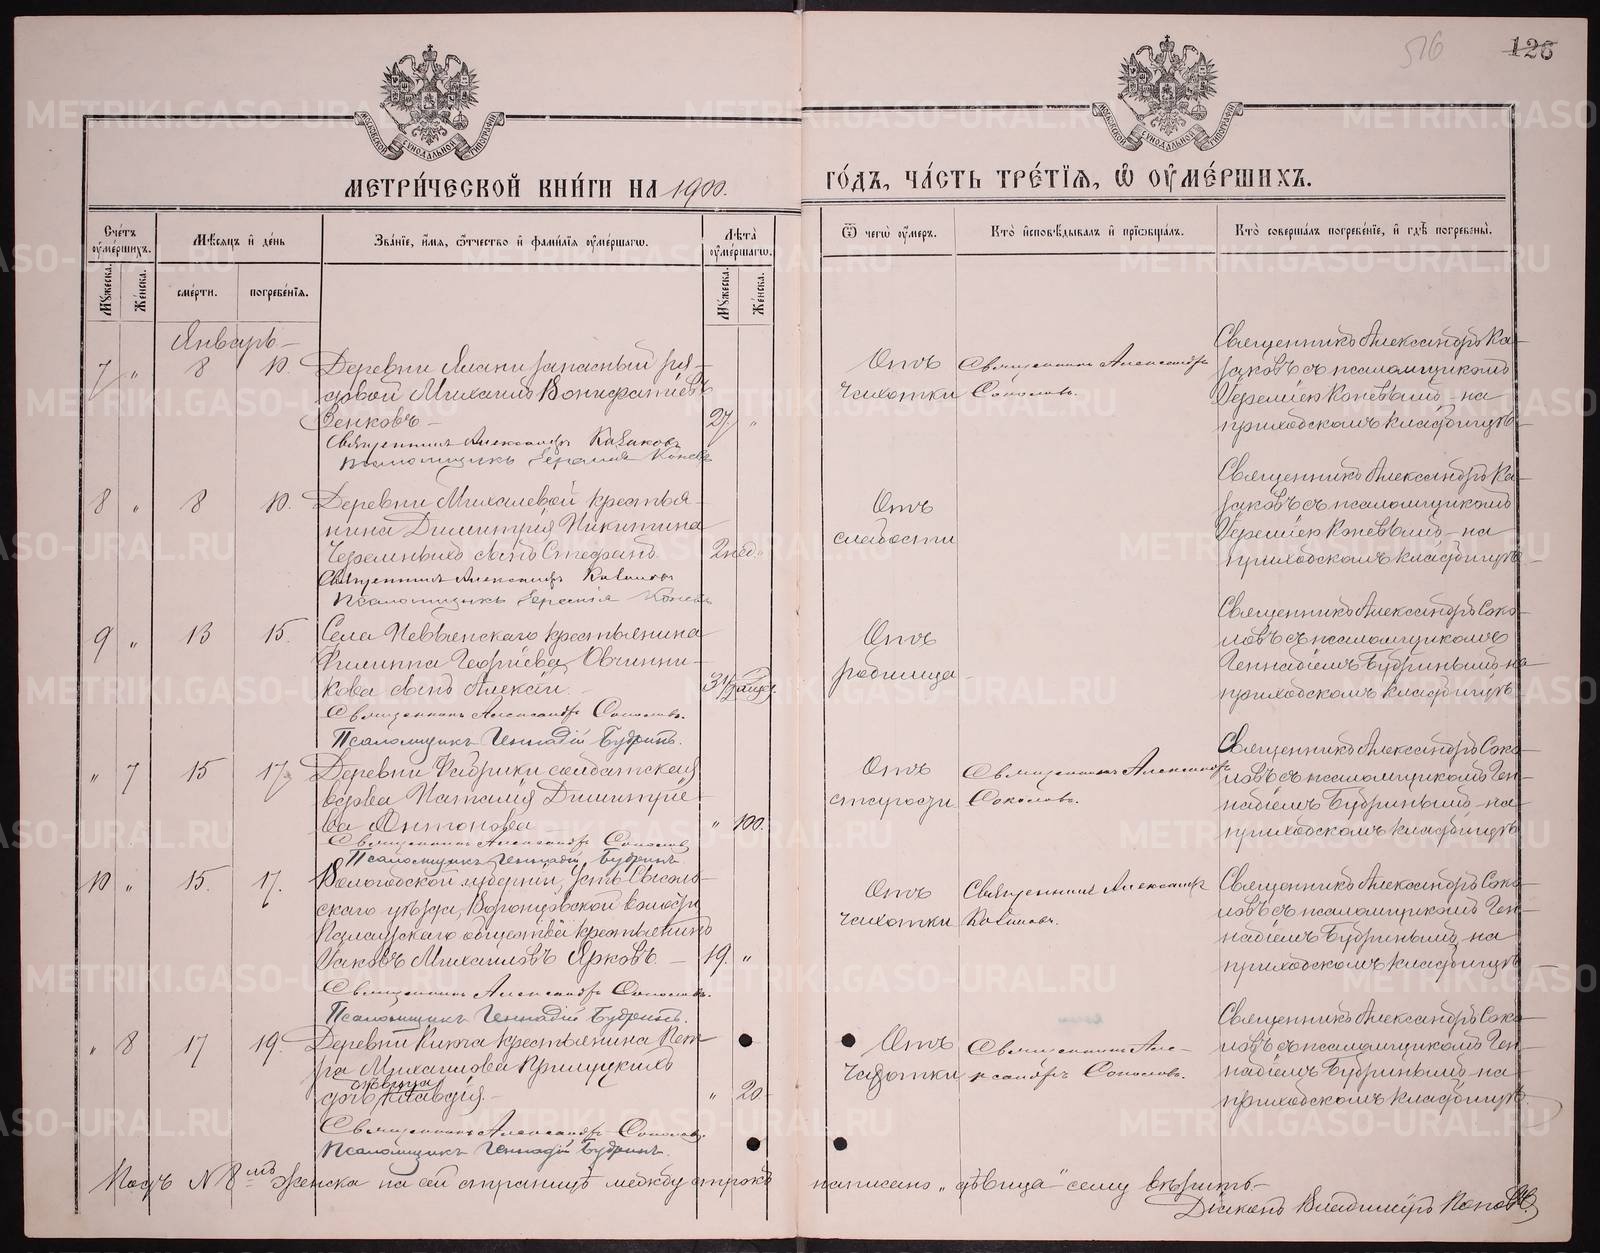 516
126
МЕТРИ́ЧЕСКОЙ КНИ́ГИ НА 1900.
ГО́ДЪ, ЧА́СТЬ ТРЕ́ТІЯ, Ѡ ОУМЕ́РШИХЪ.
Сче́тъ оуме́ршихъ.
Мѣ́сяцъ и де́нь
Зва́ніе, и́мя, ѻ҆́тчество и фами́лія оуме́ршагѡ.
Лѣ́та оуме́ршагѡ.
Ѿ чегѡ̀ оу́меръ.
Кто̀ исповѣ́дывалъ и прїѡбща́лъ.
Кто̀ соверша́лъ погребе́ніе, и гдѣ̀ погребе́ны.
Мꙋ́жеска.
Же́нска.
сме́рти.
погребе́нія.
Мꙋ́жеска.
Же́нска.
Январь
7 " 8 10. Деревни запасный ря-
довой Михаилъ Вонифатіевъ
Зенковъ 27 "
Священникъ Александръ Казаковъ
Псаломщикъ Іеремія Коневъ
Отъ
чахотки
Священникъ Александръ
Соколовъ.
Священникъ Александръ Ка-
заковъ съ псаломщикомъ
Іереміею Коневымъ на
приходскомъ кладбищѣ
8 " 8 10. Деревни Михалевой крестья-
нина Димитрія Никитина
Черемныхъ сынъ Стефанъ 2 нед. "
Священникъ Александръ Казаковъ
Псаломщикъ Іеремія Коневъ
Отъ
слабости
Священникъ Александръ Ка-
заковъ съ псаломщикомъ
Іереміею Коневымъ на
приходскомъ кладбищѣ
9 " 13 15. Села Невьянскаго крестьянина
Филиппа Георгіева Овчинни-
кова сынъ Алексій
Священникъ Александръ Соколовъ.
Псаломщикъ Геннадій Будринъ.
Отъ
родимца
Священникъ Александръ Соко-
ловъ съ псаломщикомъ
Геннадіемъ Будринымъ на
приходскомъ кладбищѣ
" 7 15 17 Деревни Фабрики солдатская
вдова Наталія Димитріе-
ва Антонова " 100.
Священникъ Александръ Соколовъ
Псаломщикъ Геннадій Будринъ
Отъ
старости
Священникъ Александръ
Соколовъ.
Священникъ Александръ Соко-
ловъ съ псаломщикомъ Ген-
надіемъ Будринымъ на
приходскомъ кладбищѣ
10 " 15. 17. Вологодской губерніи, Усть-Сысоль-
скаго уѣзда, Воронцовской волости
общества крестьянинъ
Іаковъ Михаиловъ Ярковъ 19. "
Священникъ Александръ Соколовъ.
Псаломщикъ Геннадій Будринъ.
Отъ
чахотки
Священникъ Александръ
Казаковъ.
Священникъ Александръ Соко-
ловъ съ псаломщикомъ Ген-
надіемъ Будринымъ на
приходскомъ кладбищѣ
" 8 17 19. Деревни Ключа крестьянина Пет-
ра Михаилова Прилуцкихъ
дѣвица
дочь Клавдія. " 20
Священникъ Александръ Соколовъ.
Псаломщикъ Геннадій Будринъ.
Отъ
чахотки
Священникъ Але-
ксандръ Соколовъ.
Священникъ Александръ Соко-
ловъ съ псаломщикомъ Ген-
надіемъ Будринымъ на
приходскомъ кладбищѣ.
Подъ № 8мъ женска на сей страницѣ между строкъ написано „дѣвица" сему вѣрить
Діаконъ Владиміръ Поповъ
METRIKI.GASO-URAL.RU